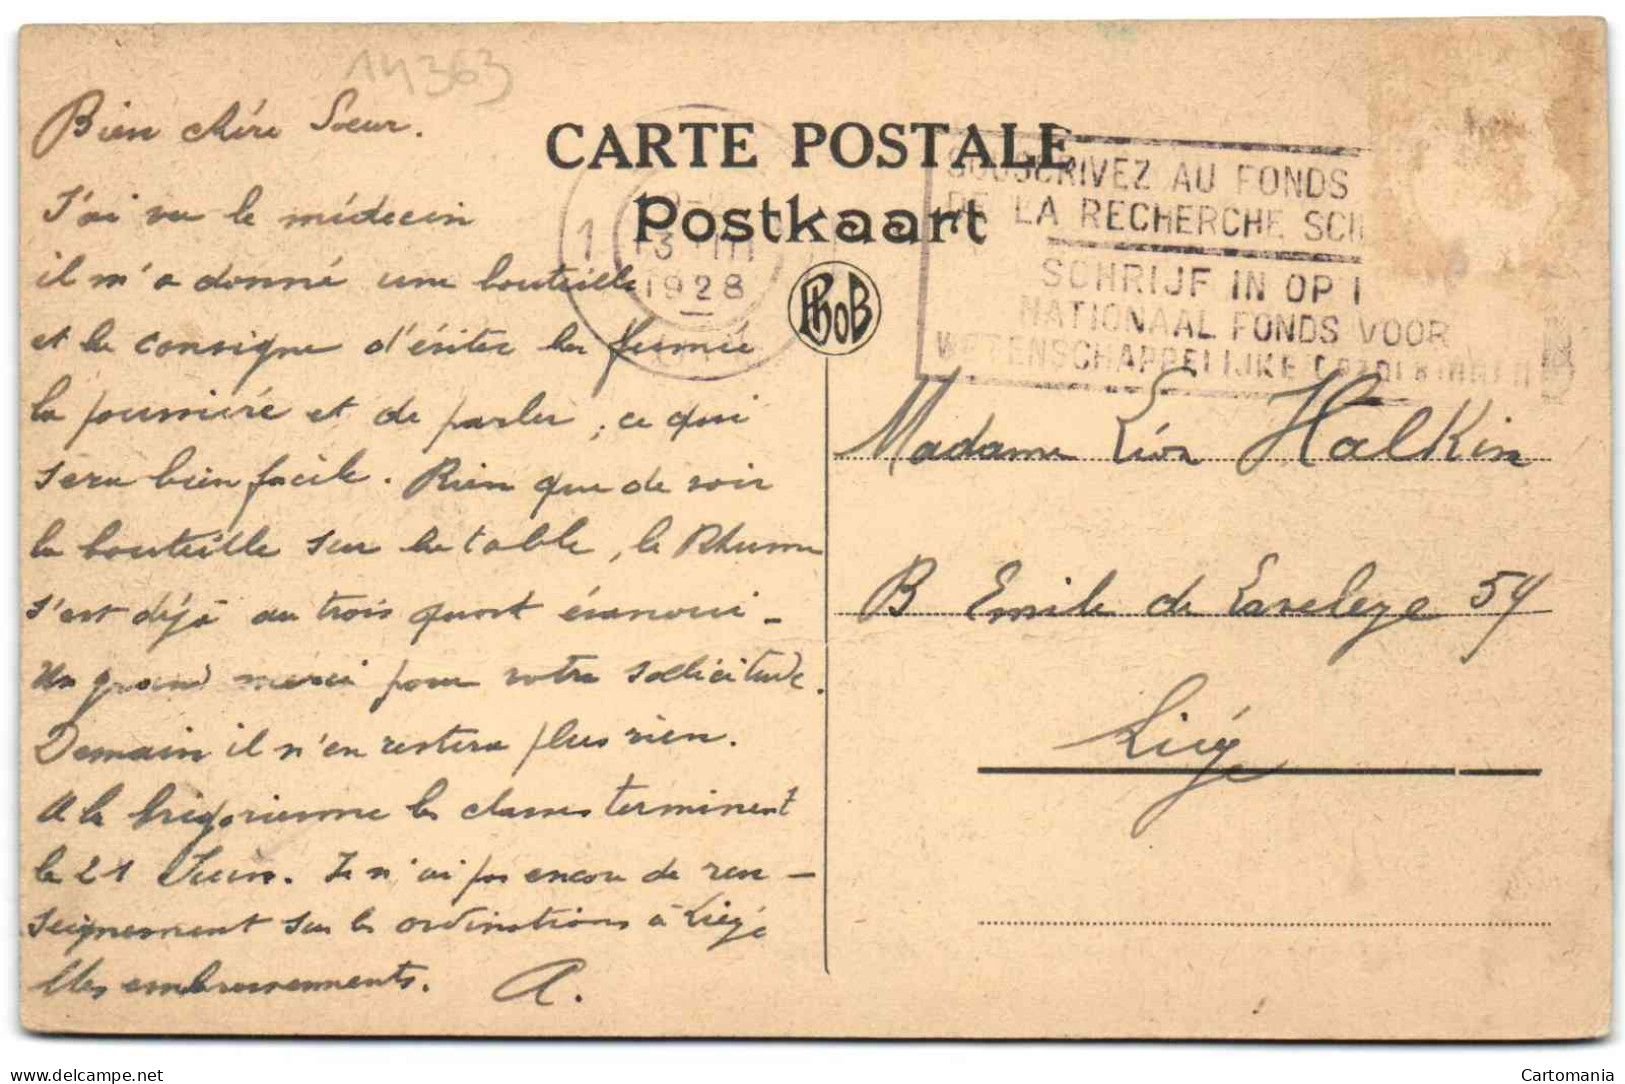 14363
Bien chère Soeur.
J'ai vu le médecin
il m'a donné une bouteille
et la consigne d'éviter la fumée
la poussière et de parler, ce qui
sera bien facile. Rien que de voir
la bouteille sur la table, le Rhume
s'est déjà au trois quart évanoui -
Un grand merci pour votre sollicitude.
Demain il n'en restera plus rien.
A la Grégorienne les classes terminent
le 21 Juin. Je n'ai pas encore de ren-
seignement sur les ordinations à Liége
Mes embrassements. A.
CARTE POSTALE
Postkaart
1
13 III
1928
PhoB
SOUSCRIVEZ AU FONDS
DE LA RECHERCHE SCI
SCHRIJF IN OP
NATIONAAL FONDS VOOR
WETENSCHAPPELIJKE
Madame Léon Halkin
B Emile de Laveleye 54
Liége
Delcampe.net
Cartomania